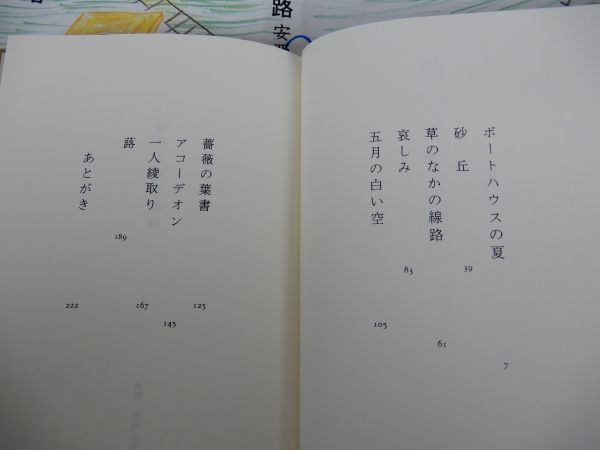 路 安
ボートハウスの夏
7
砂 丘
39
草のなかの線路
61
哀しみ
83
五月の白い空
105
薔薇の葉書
125
アコーデオン
145
一人綾取り
167
蕗
189
あとがき
222